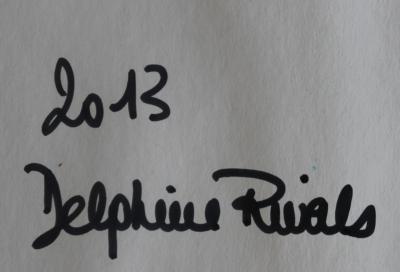 2013
Delphine Rivals